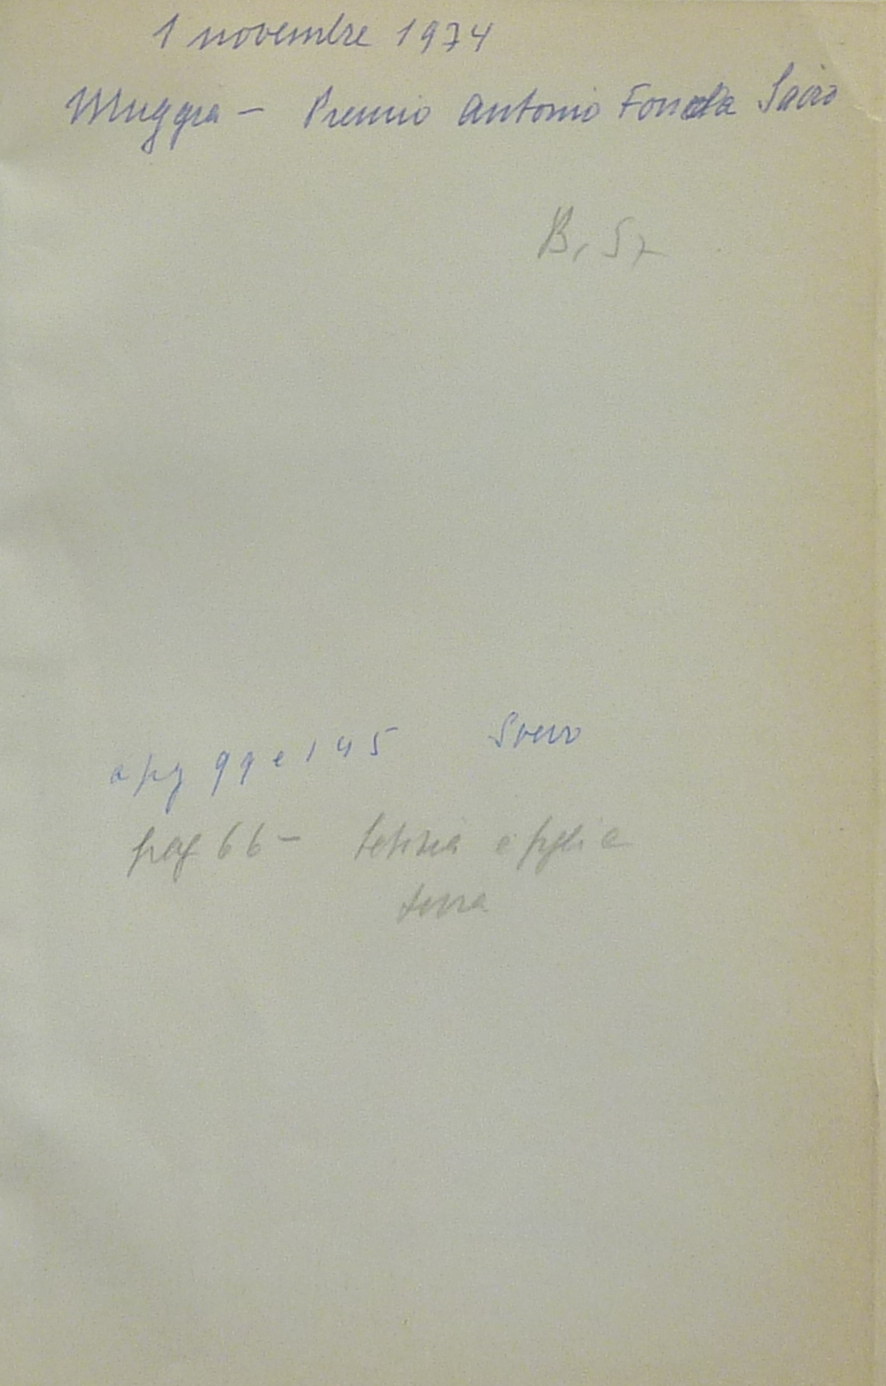 1 novembre 1974
Muggia - Premio Antonio Fonda Savio
B, 57
a pag 99 e 145 Svevo
pag 66 - Letizia e figlia